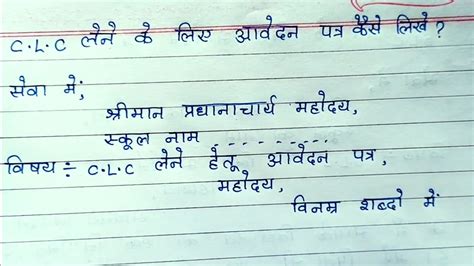 C.L.C लेने के लिए आवेदन पत्र कैसे लिखे ?
सेवा में,
श्रीमान प्रधानाचार्य महोदय,
स्कूल नाम . . . . . . . . .
विषय ÷ C.L.C लेने हेतू आवेदन पत्र,
महोदय,
विनम्र शब्दो में